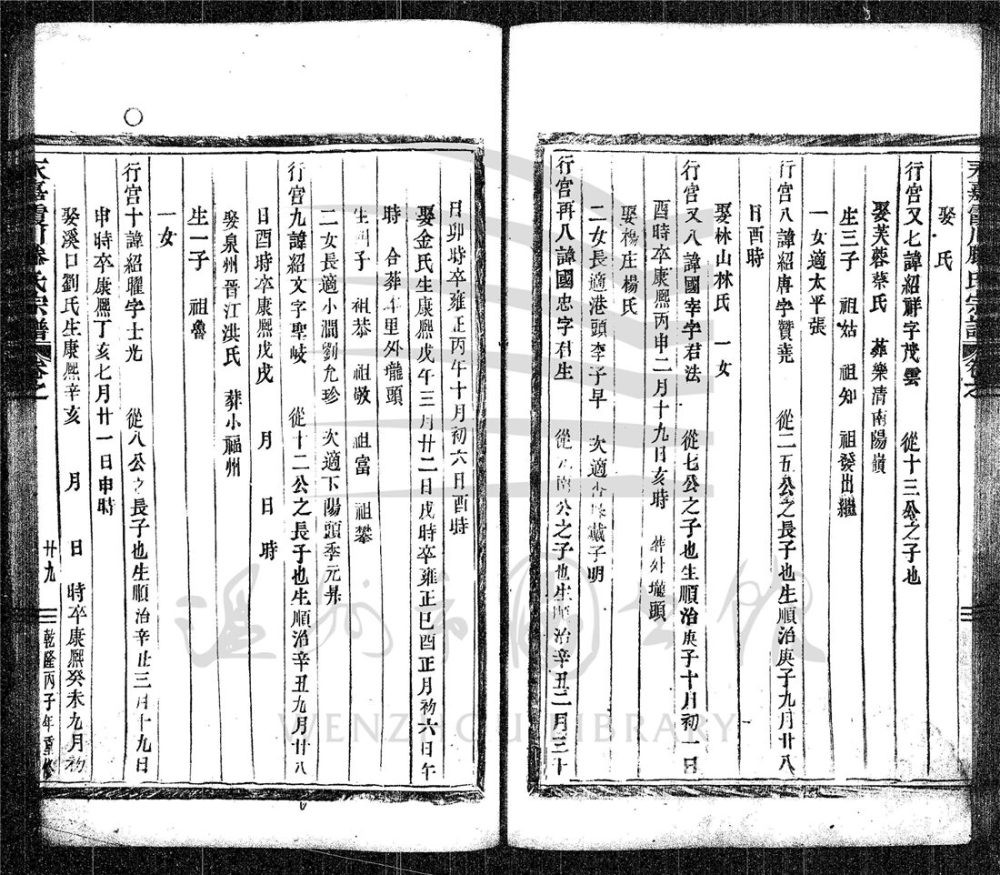 娶 氏
行宫又七諱紹祥字茂雲 從十三公之子也
娶芙蓉蔡氏 葬樂清南陽嶺
生三子 祖姑 祖知 祖發出繼
一女適太平張
行宫八諱紹唐字贊堯 從二五公之長子也生順治庚子九月廿八
日酉時
娶林山林氏 一女
行宫又八諱國宰字君法 從七公之子也生順治庚子十月初一日
酉時卒康熙丙申二月十九日亥時 葬外壠頭
娶楊庄楊氏
二女長適港頭李子早 次適 戴子明
行宫再八諱國忠字君生 從 南公之子也生順治辛丑二月三十
日卯時卒雍正丙午十月初六日酉時
娶金氏生康熙戊午三月廿二日戌時卒雍正巳酉正月初六日午
時 合葬 里外壠頭
生四子 祖恭 祖敬 祖富 祖攀
二女長適小澗劉允珍 次適下陽頭季元昇
行宫九諱紹文字聖岐 從十二公之長子也生順治辛丑九月廿八
日酉時卒康熙戊戌 月 日 時
娶泉州晋江洪氏 葬小福州
生一子 祖魯
一女
行宫十諱紹曜字士光 從八公之長子也生順治辛丑三月十九日
申時卒康熙丁亥七月廿一日申時
娶溪口劉氏生康熙辛亥 月 日 時卒康熙癸未九月初
永嘉 滕氏宗譜 卷之 廿九 乾隆丙子年重修
WENZHOU LIBRARY